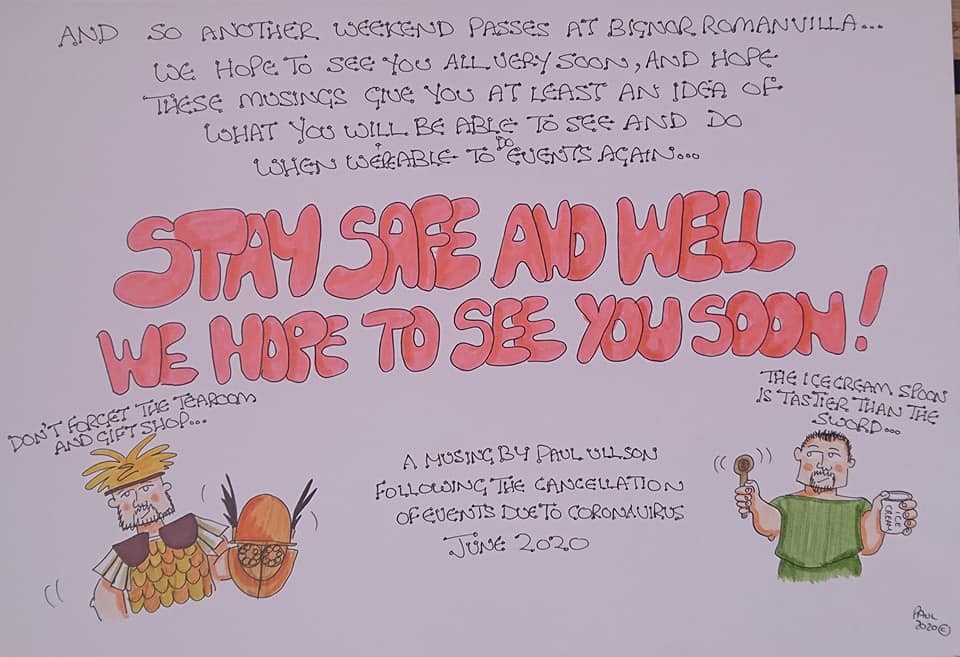 AND SO ANOTHER WEEKEND PASSES AT BIGNOR ROMAN VILLA...
WE HOPE TO SEE YOU ALL VERY SOON, AND HOPE
THESE MUSINGS GIVE YOU AT LEAST AN IDEA OF
WHAT YOU WILL BE ABLE TO SEE AND DO
WHEN WE'RE ABLE TO DO EVENTS AGAIN...
STAY SAFE AND WELL
WE HOPE TO SEE YOU SOON!
DON'T FORGET THE TEAROOM
AND GIFT SHOP...
THE ICE CREAM SPOON
IS TASTIER THAN THE
SWORD...
A MUSING BY PAUL ULLSON
FOLLOWING THE CANCELLATION
OF EVENTS DUE TO CORONAVIRUS
JUNE 2020
ICE
CREAM
PAUL
2020 ©